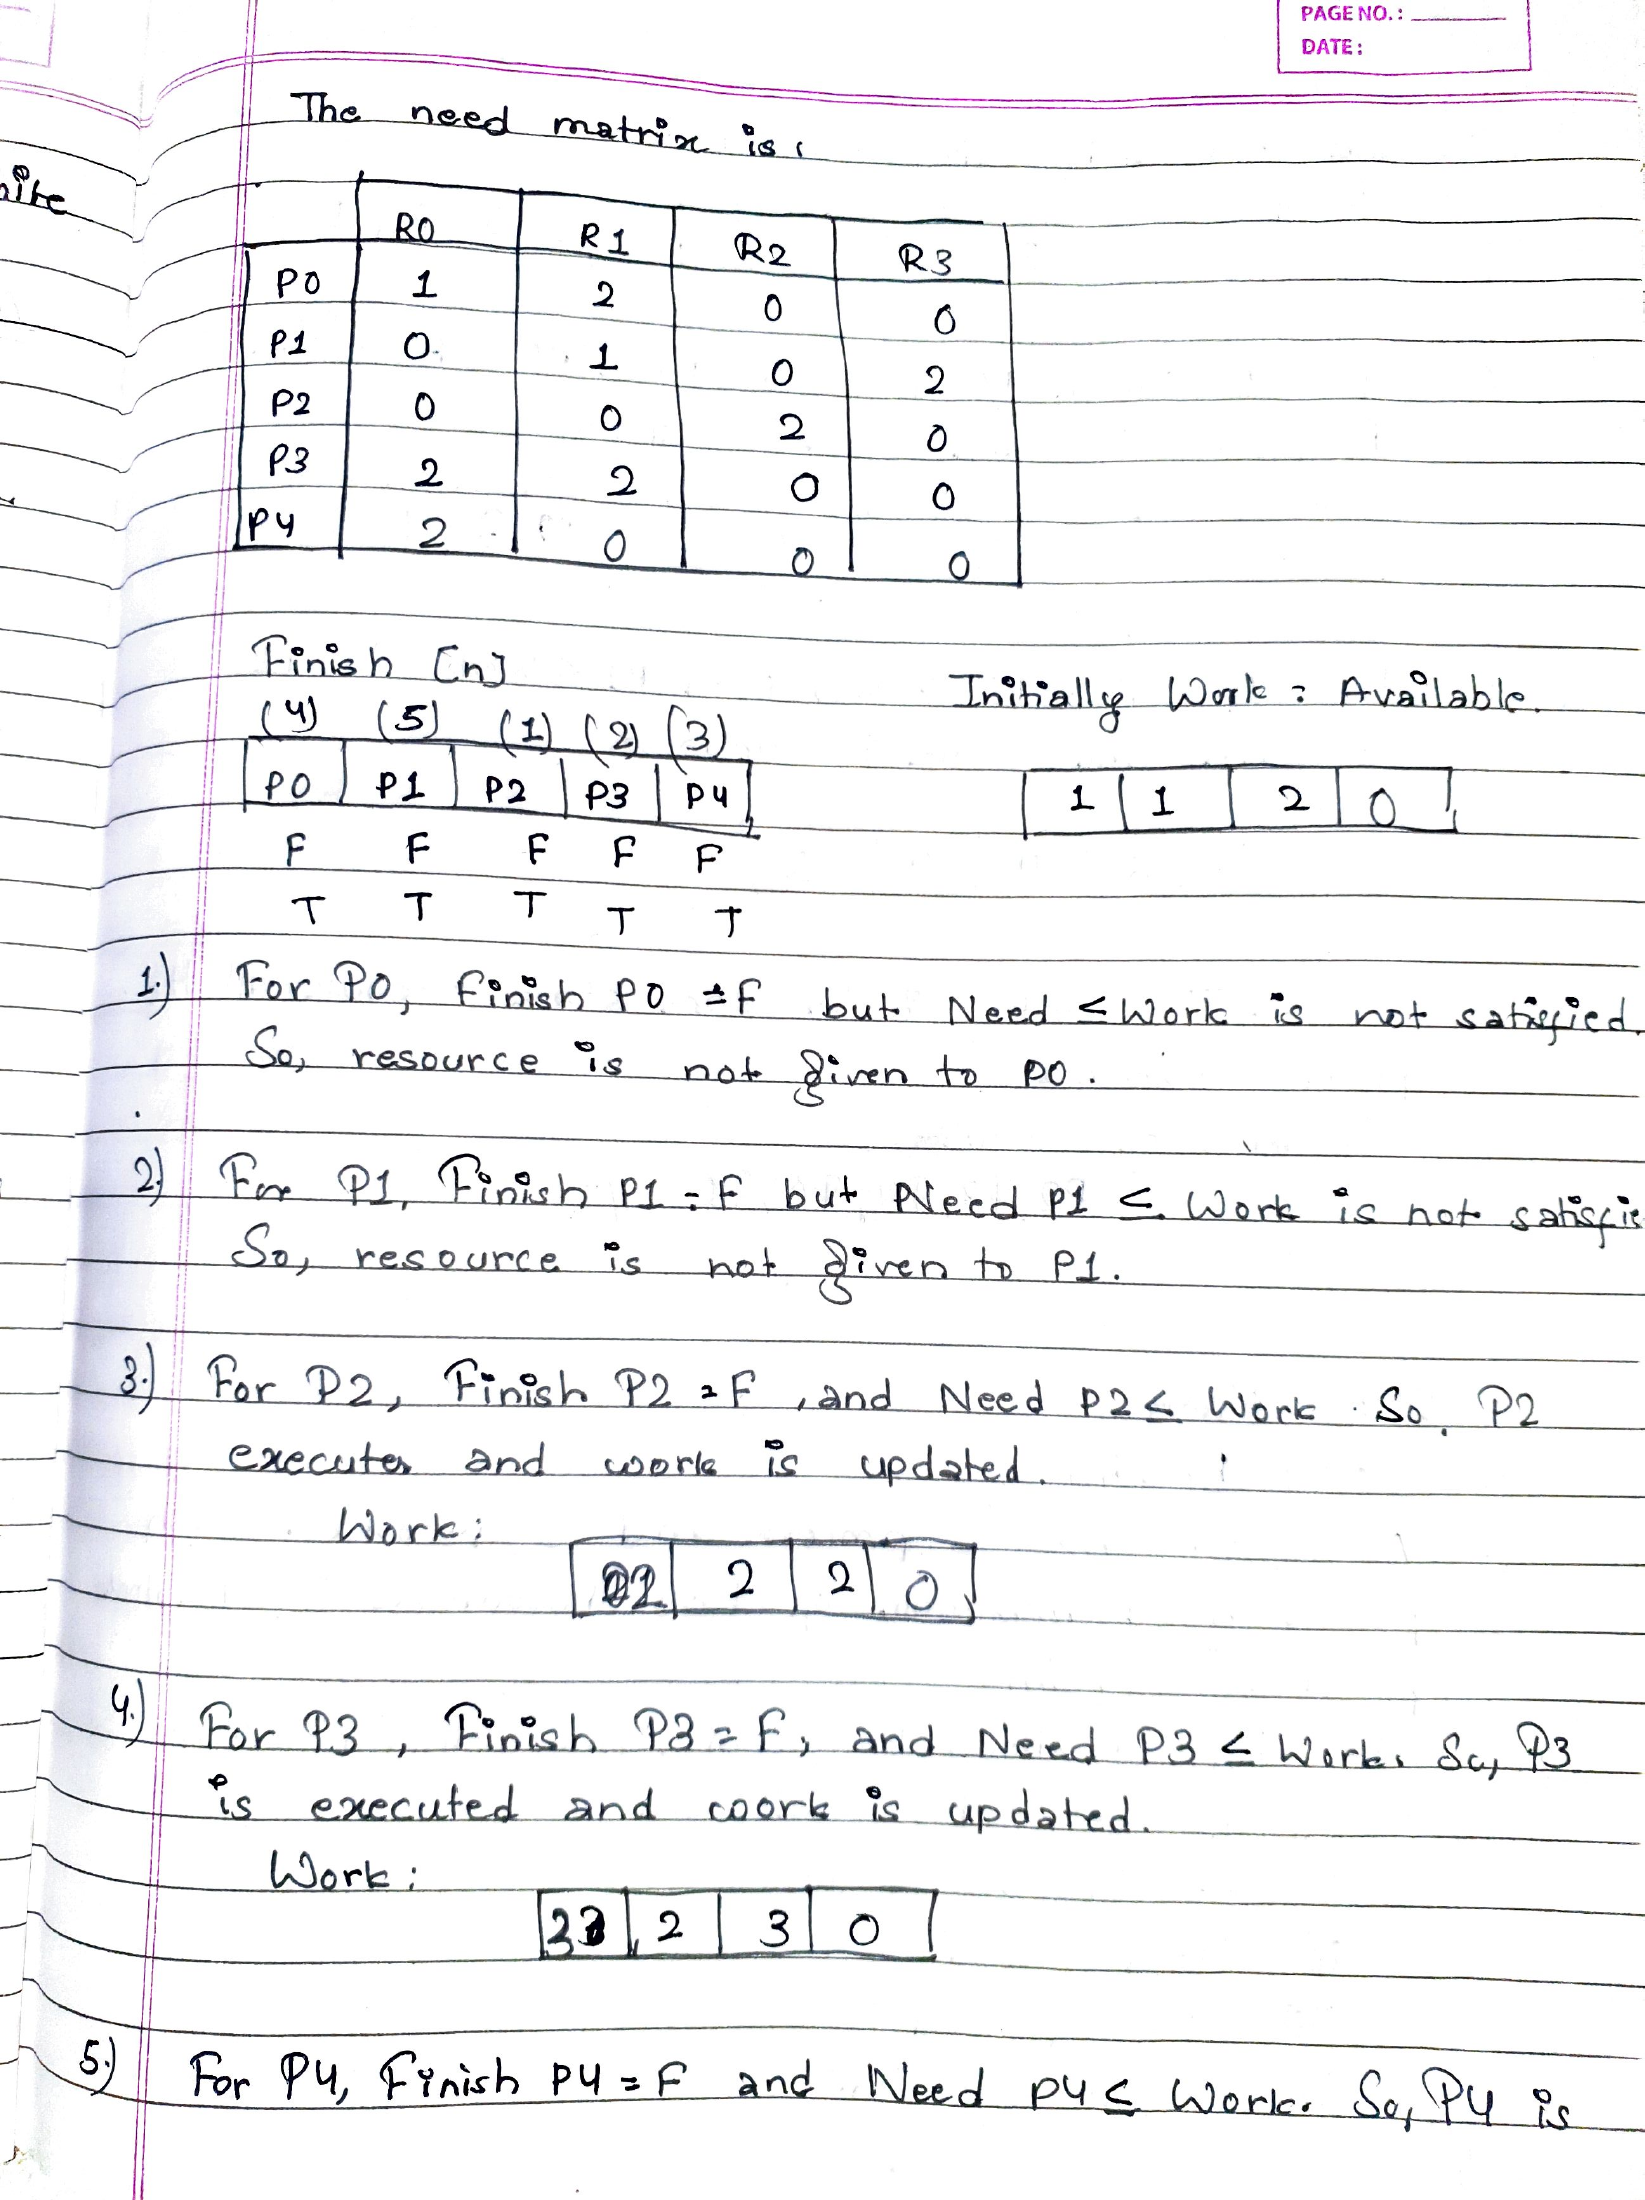 PAGE NO.:
DATE:
The need matrix is:
R0 R1 R2 R3
P0 1 2 0 0
P1 0 1 0 2
P2 0 0 2 0
P3 2 2 0 0
P4 2 0 0 0
Finish [n]
Initially Work = Available.
(4) (5) (1) (2) (3)
P0 P1 P2 P3 P4
1 1 2 0
F F F F F
T T T T T
1.) For P0, Finish P0 = F but Need ≤ Work is not satisfied.
So, resource is not given to P0.
2) For P1, Finish P1 = F but Need P1 ≤ Work is not satisfie
So, resource is not given to P1.
3.) For P2, Finish P2 = F, and Need P2 ≤ Work. So, P2
executes and work is updated.
Work:
2 2 0
4.) For P3, Finish P3 = F, and Need P3 ≤ Work. So, P3
is executed and work is updated.
Work:
2 3 0
5.) For P4, Finish P4 = F and Need P4 ≤ Work. So, P4 is